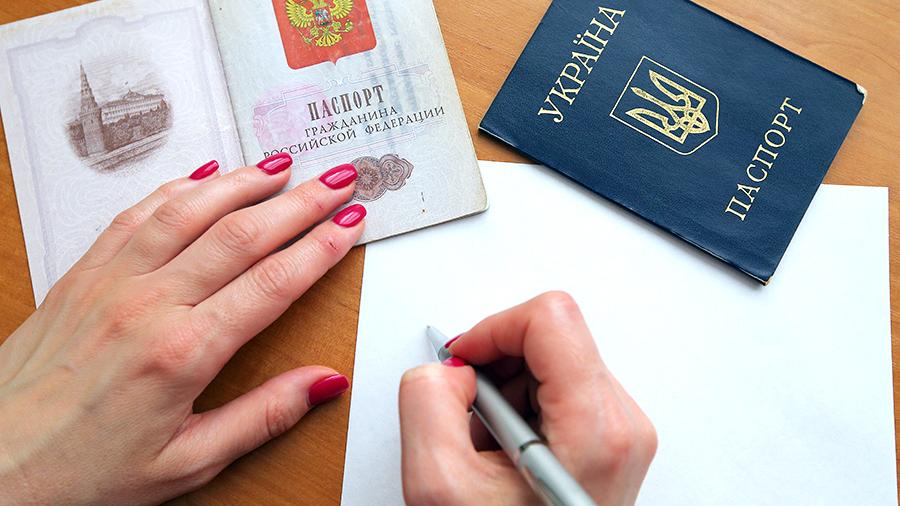 ПАСПОРТ
ГРАЖДАНИНА
РОССИЙСКОЙ ФЕДЕРАЦИИ
УКРАЇНА
ПАСПОРТ